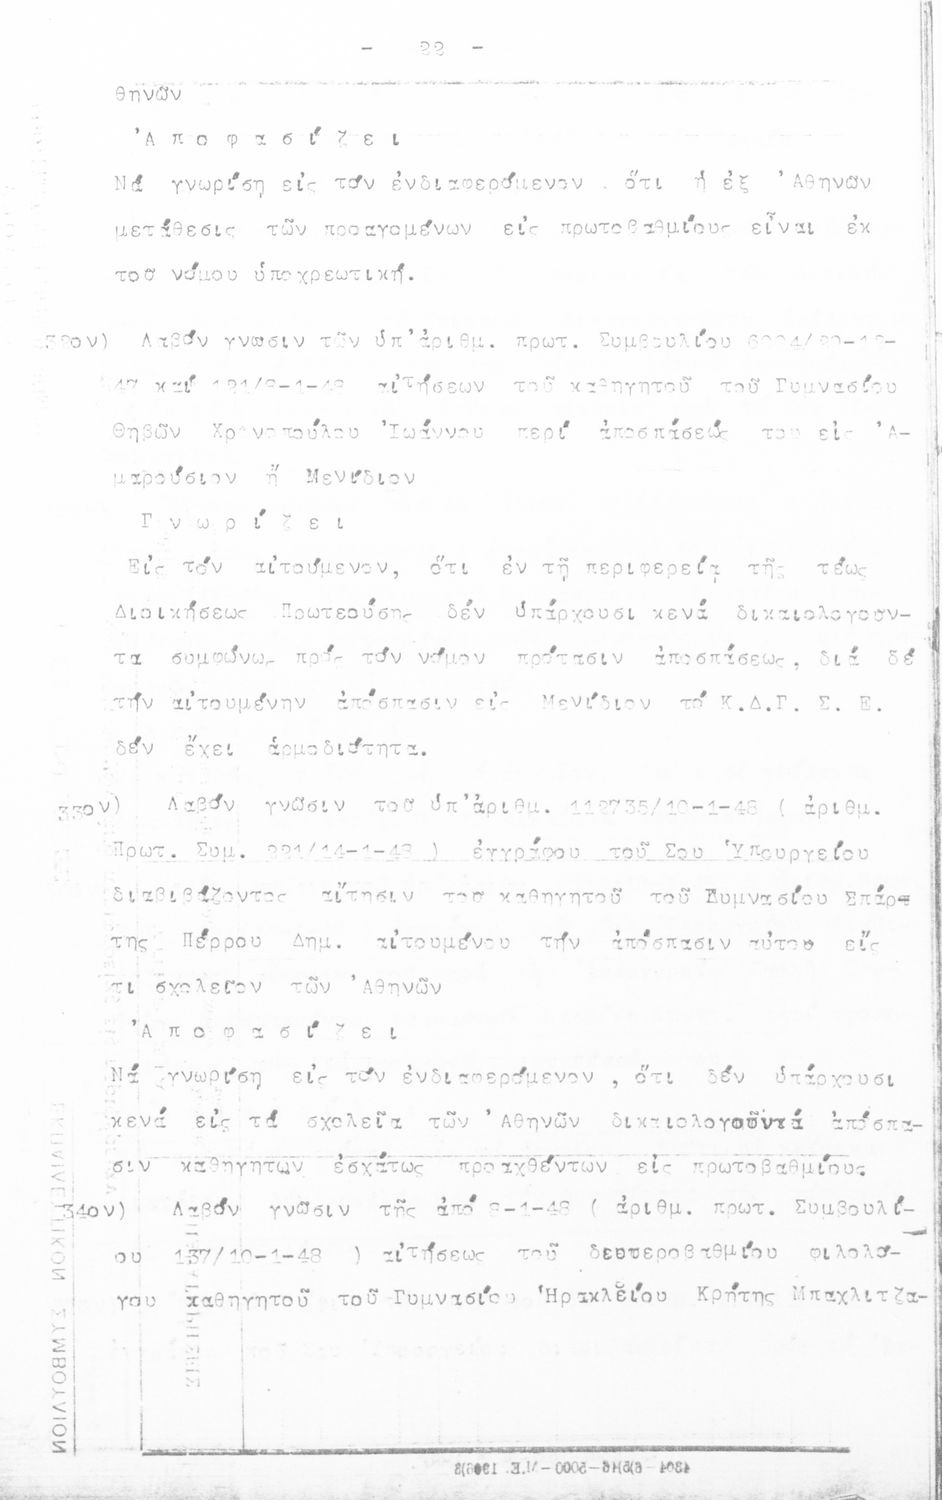 - 22 -
θηνῶν
Ἀ π ο φ α σ ί ζ ε ι
Νά γνωρίση εἰς τόν ἐνδιαφερόμενον . ὅτι ἡ ἐξ Ἀθηνῶν
μετάθεσις τῶν προαγομένων εἰς πρωτοβαθμίους εἶναι ἐκ
τοῦ νόμου ὑποχρεωτική.
32ον) Λαβόν γνῶσιν τῶν ὑπ'ἀριθμ. πρωτ. Συμβουλίου
47 καί 121/8-1-48 αἰτήσεων τοῦ καθηγητοῦ τοῦ Γυμνασίου
Θηβῶν Χρονοπούλου Ἰωάννου περί ἀποσπάσεώς του εἰς Ἀ-
μαρούσιον ἤ Μενίδιον
Γ ν ω ρ ί ζ ε ι
Εἰς τόν αἰτούμενον, ὅτι ἐν τῇ περιφερείᾳ τῆς τέως
Διοικήσεως Πρωτεούσης δέν ὑπάρχουσι κενά δικαιολογουν-
τα συμφώνως πρός τόν νόμον πρότασιν ἀποσπάσεως, διά δέ
τήν αἰτουμένην ἀπόσπασιν εἰς Μενίδιον τό Κ.Δ.Γ. Σ. Ε.
δέν ἔχει ἁρμοδιότητα.
33ον) Λαβόν γνῶσιν τοῦ ὑπ'ἀριθμ. 112735/10-1-48 ( ἀριθμ.
Πρωτ. Συμ. 221/14-1-48 ) ἐγγράφου τοῦ Σου Ὑπουργείου
διαβιβάζοντος αἴτησιν τοῦ καθηγητοῦ τοῦ Γυμνασίου Σπάρ-
της Πέρρου Δημ. αἰτουμένου τήν ἀπόσπασιν αὐτου εἴς
τι σχολεῖον τῶν Ἀθηνῶν
Ἀ π ο φ α σ ί ζ ε ι
Νά γνωρίση εἰς τόν ἐνδιαφερόμενον , ὅτι δέν ὑπάρχουσι
κενά εἰς τά σχολεῖα τῶν Ἀθηνῶν δικαιολογοῦντά ἀπόσπα-
σιν καθηγητων ἐσχάτως προαχθέντων εἰς πρωτοβαθμίους
34ον) Λαβόν γνῶσιν τῆς ἀπό 8-1-48 ( ἀριθμ. πρωτ. Συμβουλί-
ου 137/10-1-48 ) αἰτήσεως τοῦ δευτεροβαθμίου φιλολό-
γου καθηγητοῦ τοῦ Γυμνασίου Ἡρακλείου Κρήτης Μπαχλιτζα-
ΕΚΠΑΙΔΕΥΤΙΚΟΝ ΣΥΜΒΟΥΛΙΟΝ